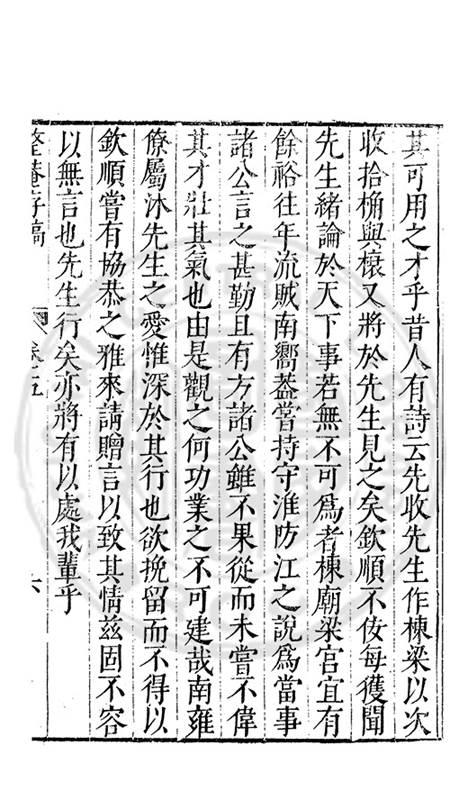 其可用之才乎昔人有詩云先收先生作棟梁以次
收拾桷與榱又將於先生見之矣欽順不佞每獲聞
先生緒論於天下事若無不可爲者棟廟梁宮宜有
餘裕往年流賊南嚮葢嘗持守淮防江之說爲當事
諸公言之甚勤且有方諸公雖不果從而未嘗不偉
其才壯其氣也由是觀之何功業之不可建哉南雍
僚屬沐先生之愛惟深於其行也欲挽留而不得以
欽順嘗有協恭之雅來請贈言以致其情兹固不容
以無言也先生行矣亦將有以處我輩乎
整菴存稿
卷之五
六